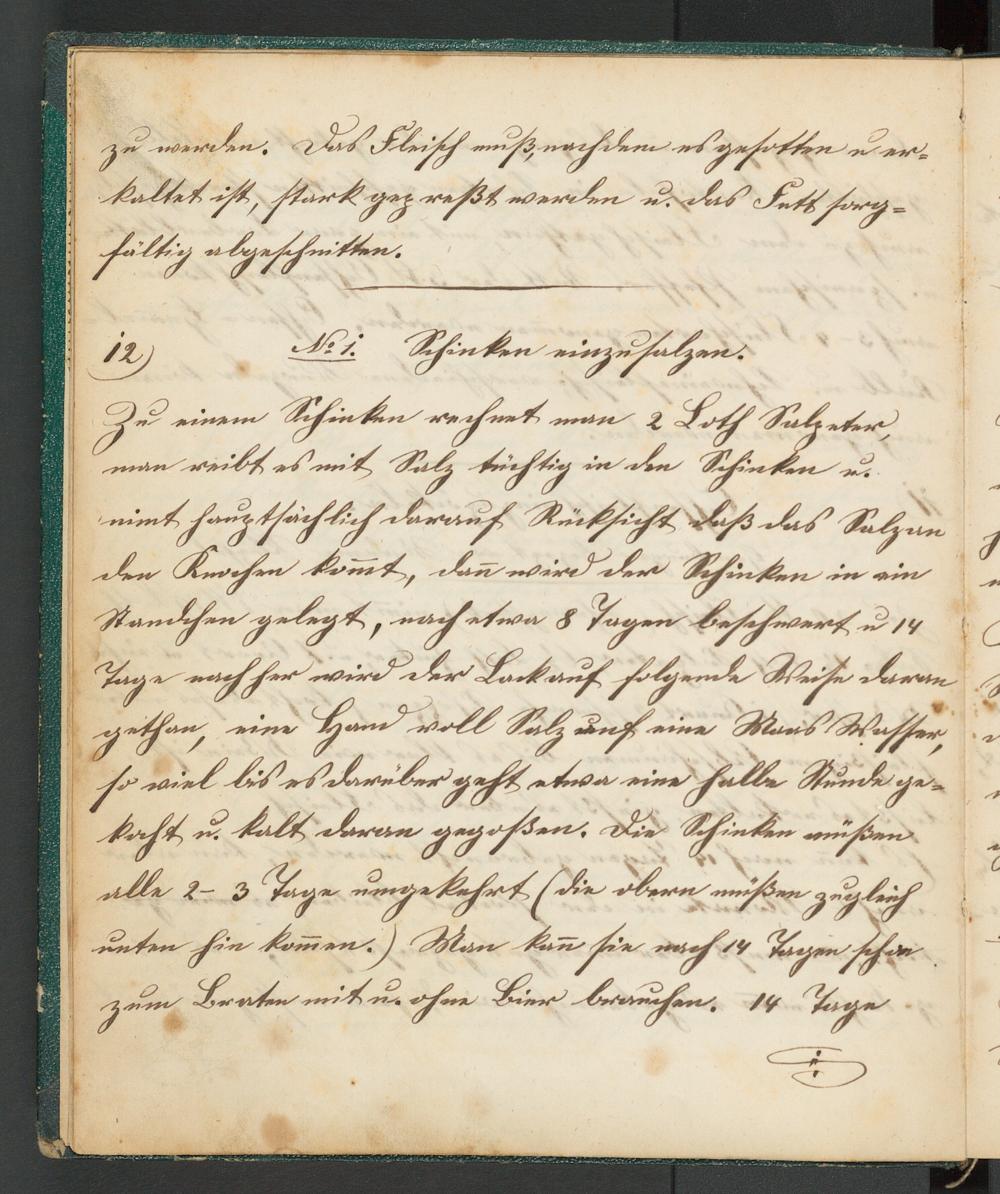 zu werden. Das Fleisch muß, nachdem es gesotten u er=
kaltet ist, stark gepreßt werden u. das Fett sorg=
fältig abgeschnitten.
12) No 1. Schinken einzusalzen.
Zu einem Schinken rechnet man 2 Loth Salpeter,
man reibt es mit Salz tüchtig in den Schinken u.
nimt hauptsächlich darauf Rücksicht daß das Salz an
den Knochen kom̅t, dan̅ wird der Schinken in ein
Standchen gelegt, nach etwa 8 Tagen beschwert u 14
Tage nachher wird der Lack auf folgende Weise daran
gethan, eine Hand voll Salz auf eine Maas Wasser,
so viel bis es darüber geht etwa eine halbe Stunde ge=
kocht u. kalt daran gegoßen. Die Schinken müßen
alle 2- 3 Tage umgekehrt (die obern müßen zugleich
unten hin kom̅en.) Man kan̅ sie nach 14 Tagen schon
zum Braten mit u. ohne Bier brauchen. 14 Tage